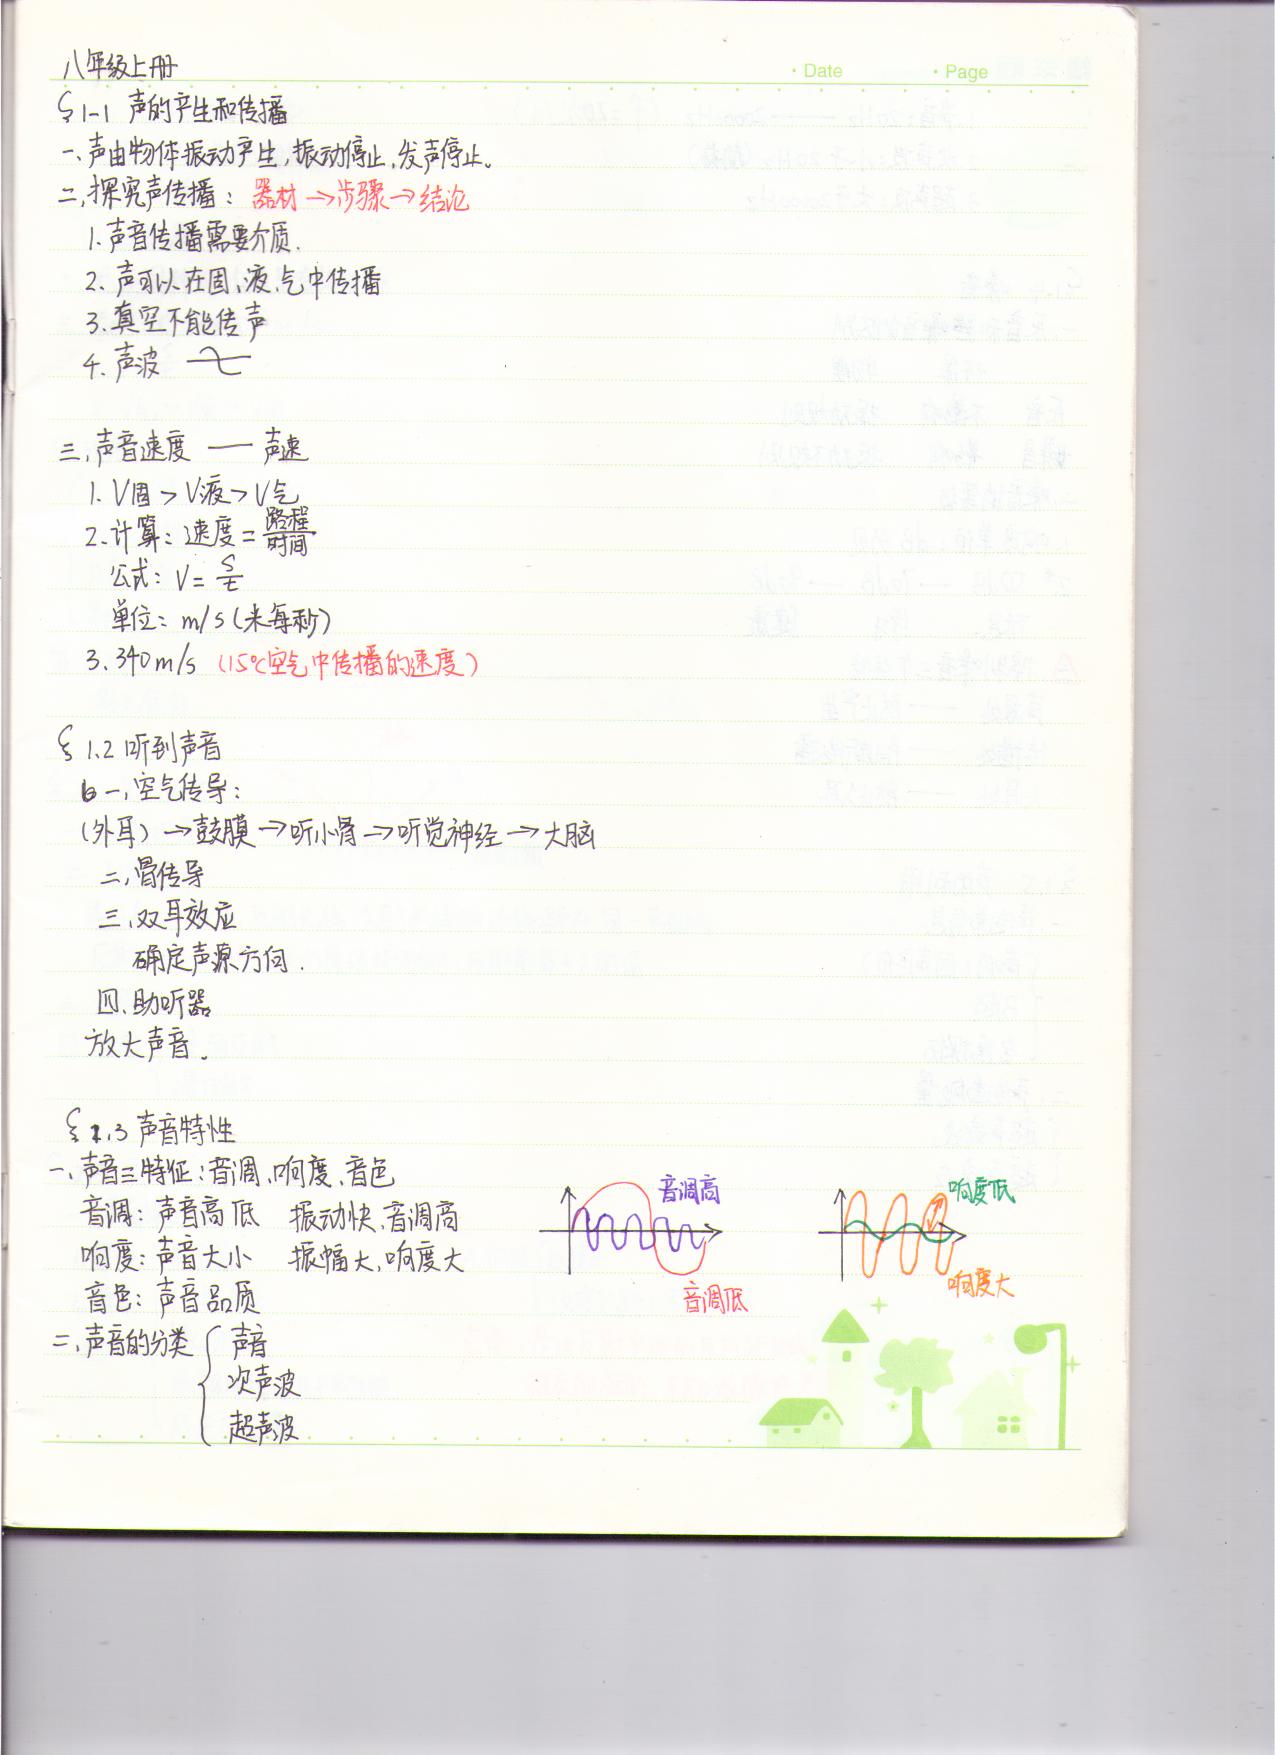 八年级上册
· Date · Page
§1-1 声的产生和传播
一、声由物体振动产生,振动停止,发声停止。
二、探究声传播: 器材→步骤→结论
1. 声音传播需要介质.
2. 声可以在固、液、气中传播
3. 真空不能传声
4. 声波
三、声音速度 —— 声速
1. V固 > V液 > V气
2. 计算: 速度 = 路程/时间
公式: V = S/t
单位: m/s (米每秒)
3. 340m/s (15℃空气中传播的速度)
§ 1.2 听到声音
一、空气传导:
(外耳) →鼓膜→听小骨→听觉神经→大脑
二、骨传导
三、双耳效应
确定声源方向.
四、助听器
放大声音。
§ 1.3 声音特性
一、声音三特征: 音调、响度、音色
音调: 声音高低 振动快、音调高
响度: 声音大小 振幅大、响度大
音色: 声音品质
二、声音的分类 { 声音
次声波
超声波
音调高
音调低
响度低
响度大